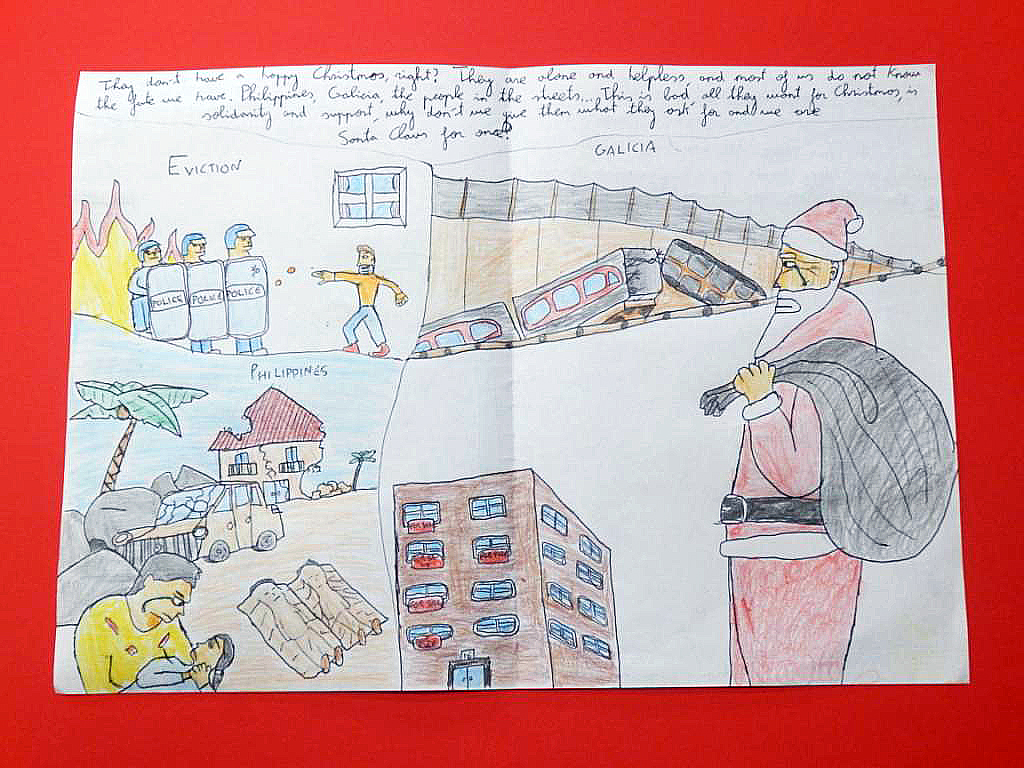 They don't have a happy Christmas, right? They are alone and helpless, and most of us do not know
the fate we have. Philippines, Galicia, the people in the streets... This is bad, all they want for Christmas, is
solidarity and support, why don't we give them what they ask for and we are
Santa Claus for once?
GALICIA
EVICTION
POLICE POLICE POLICE
PHILIPPINES
FOR SALE
FOR SALE